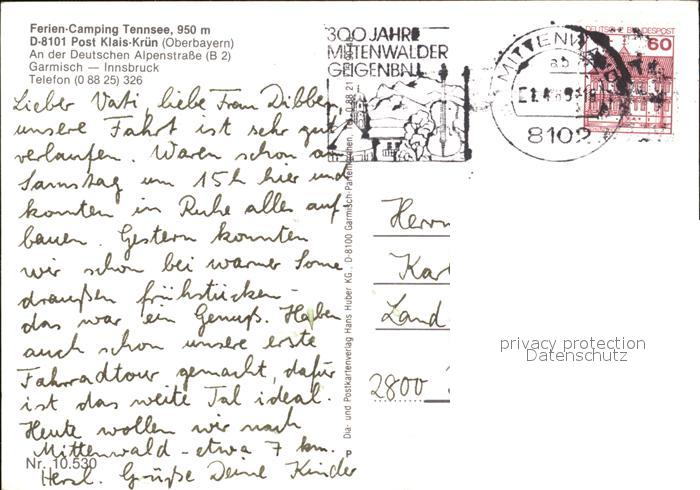 Ferien-Camping Tennsee, 950 m
D-8101 Post Klais-Krün (Oberbayern)
An der Deutschen Alpenstraße (B 2)
Garmisch — Innsbruck
Telefon (0 88 25) 326
Lieber Vati liebe Frau Dibbern,
unsere Fahrt ist sehr gut
verlaufen. Waren schon am
Samstag um 15h hier und
konnten in Ruhe alles auf
bauen. Gestern konnten
wir schon bei warmer Sonne
draußen frühstücken -
das war ein Genuß. Haben
auch schon unsere erste
Fahrradtour gemacht, dafür
ist das weite Tal ideal.
Heute wollen wir nach
Mittenwald - etwa 7 km.
Herzl. Grüße Deine Kinder
Nr. 10.530
300 JAHRE
MITTENWALDER
GEIGENBAU
MITTENWALD
8102
DEUTSCHE BUNDESPOST
60
Dia- und Postkartenverlag Hans Huber KG., D-8100 Garmisch-Partenkirchen,
P
Herrn
Kar
Land
2800
privacy protection
Datenschutz